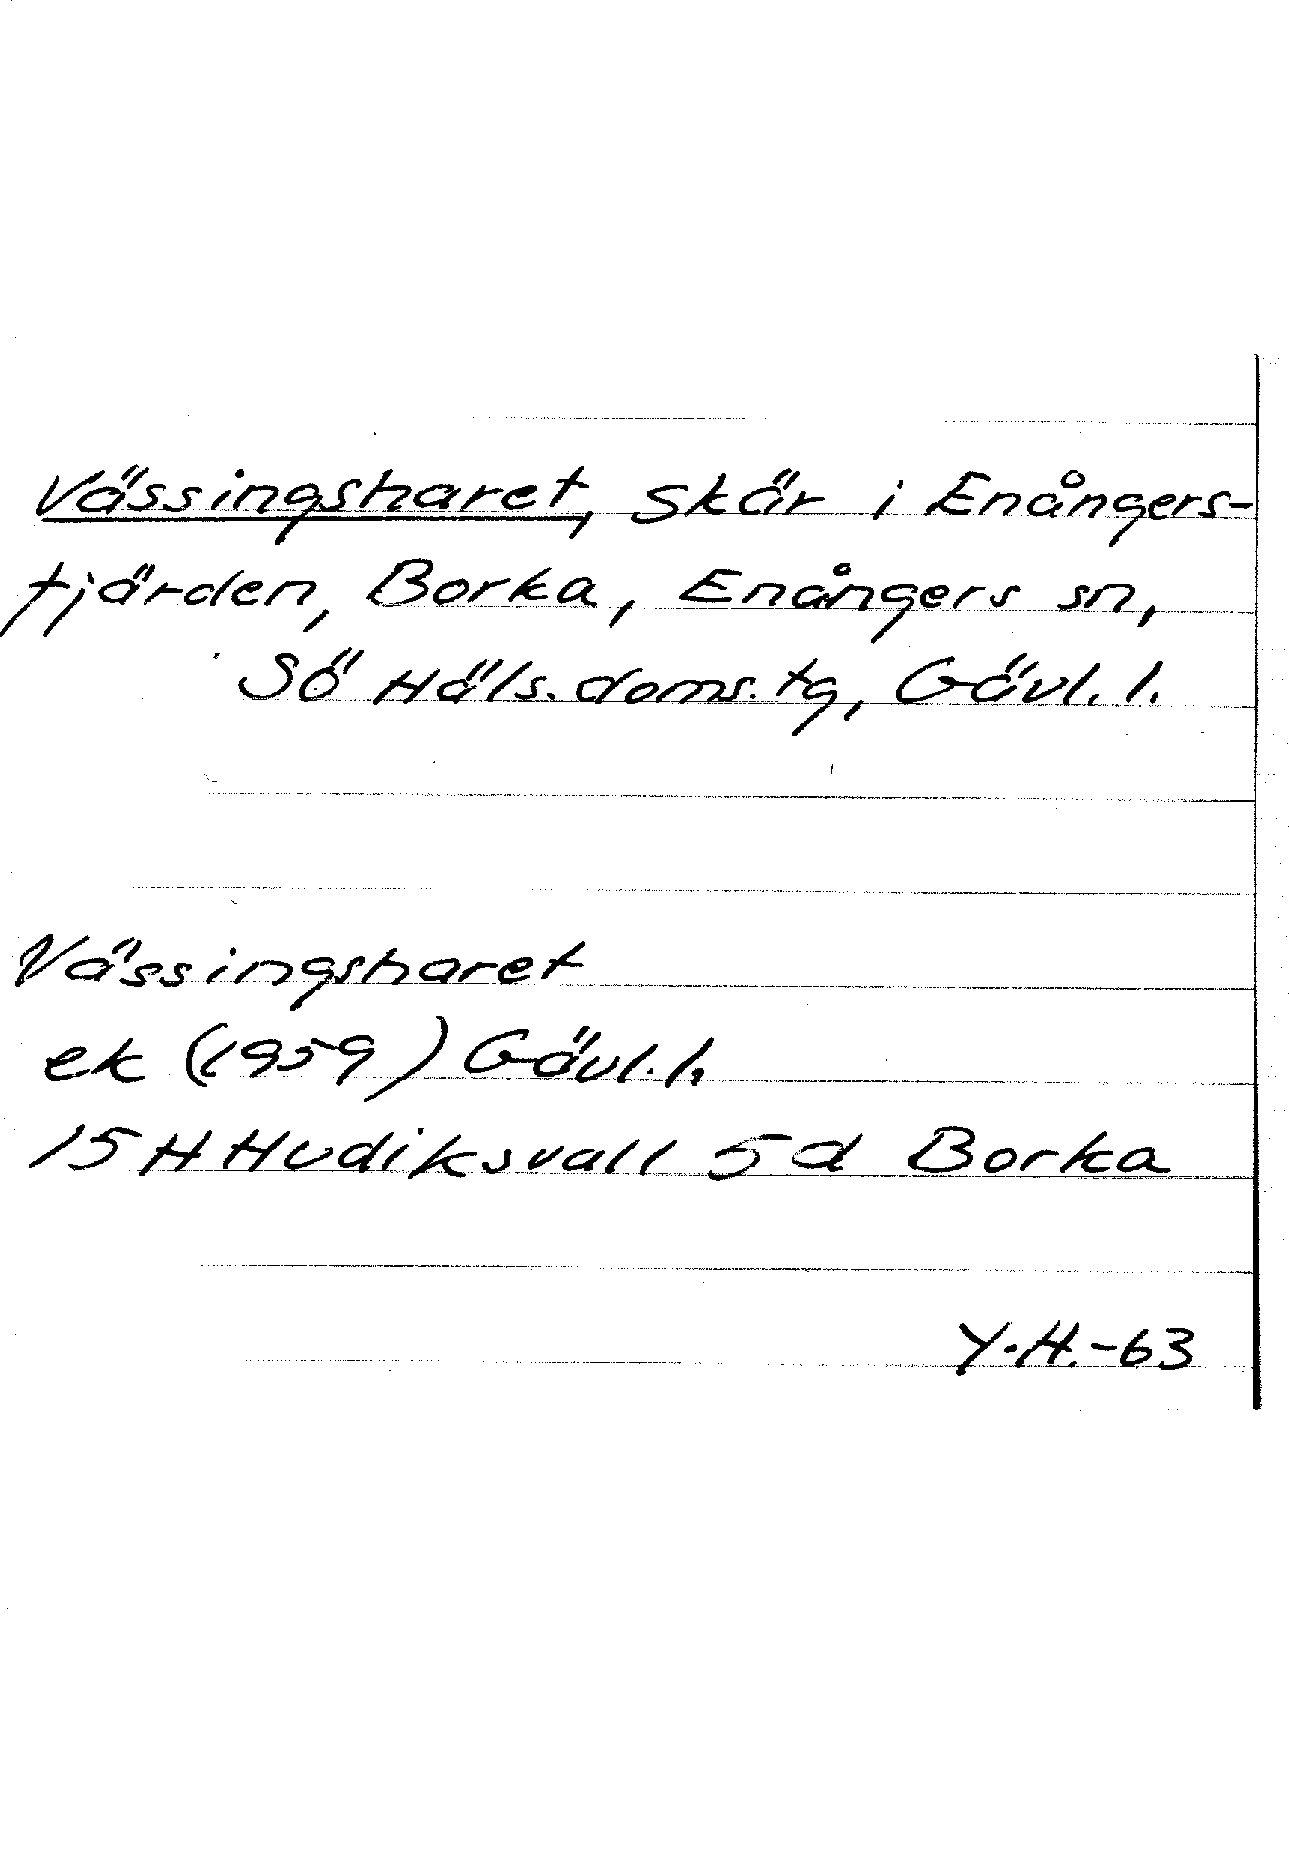 Vässingsharet, skär i Enångers-
fjärden, Borka, Enångers sn,
Sö Häls. doms. tg, Gävl. l.
Vässingsharet
ek (1959) Gävl. l.
15 H Hudiksvall 5 d Borka
Y.H.-63